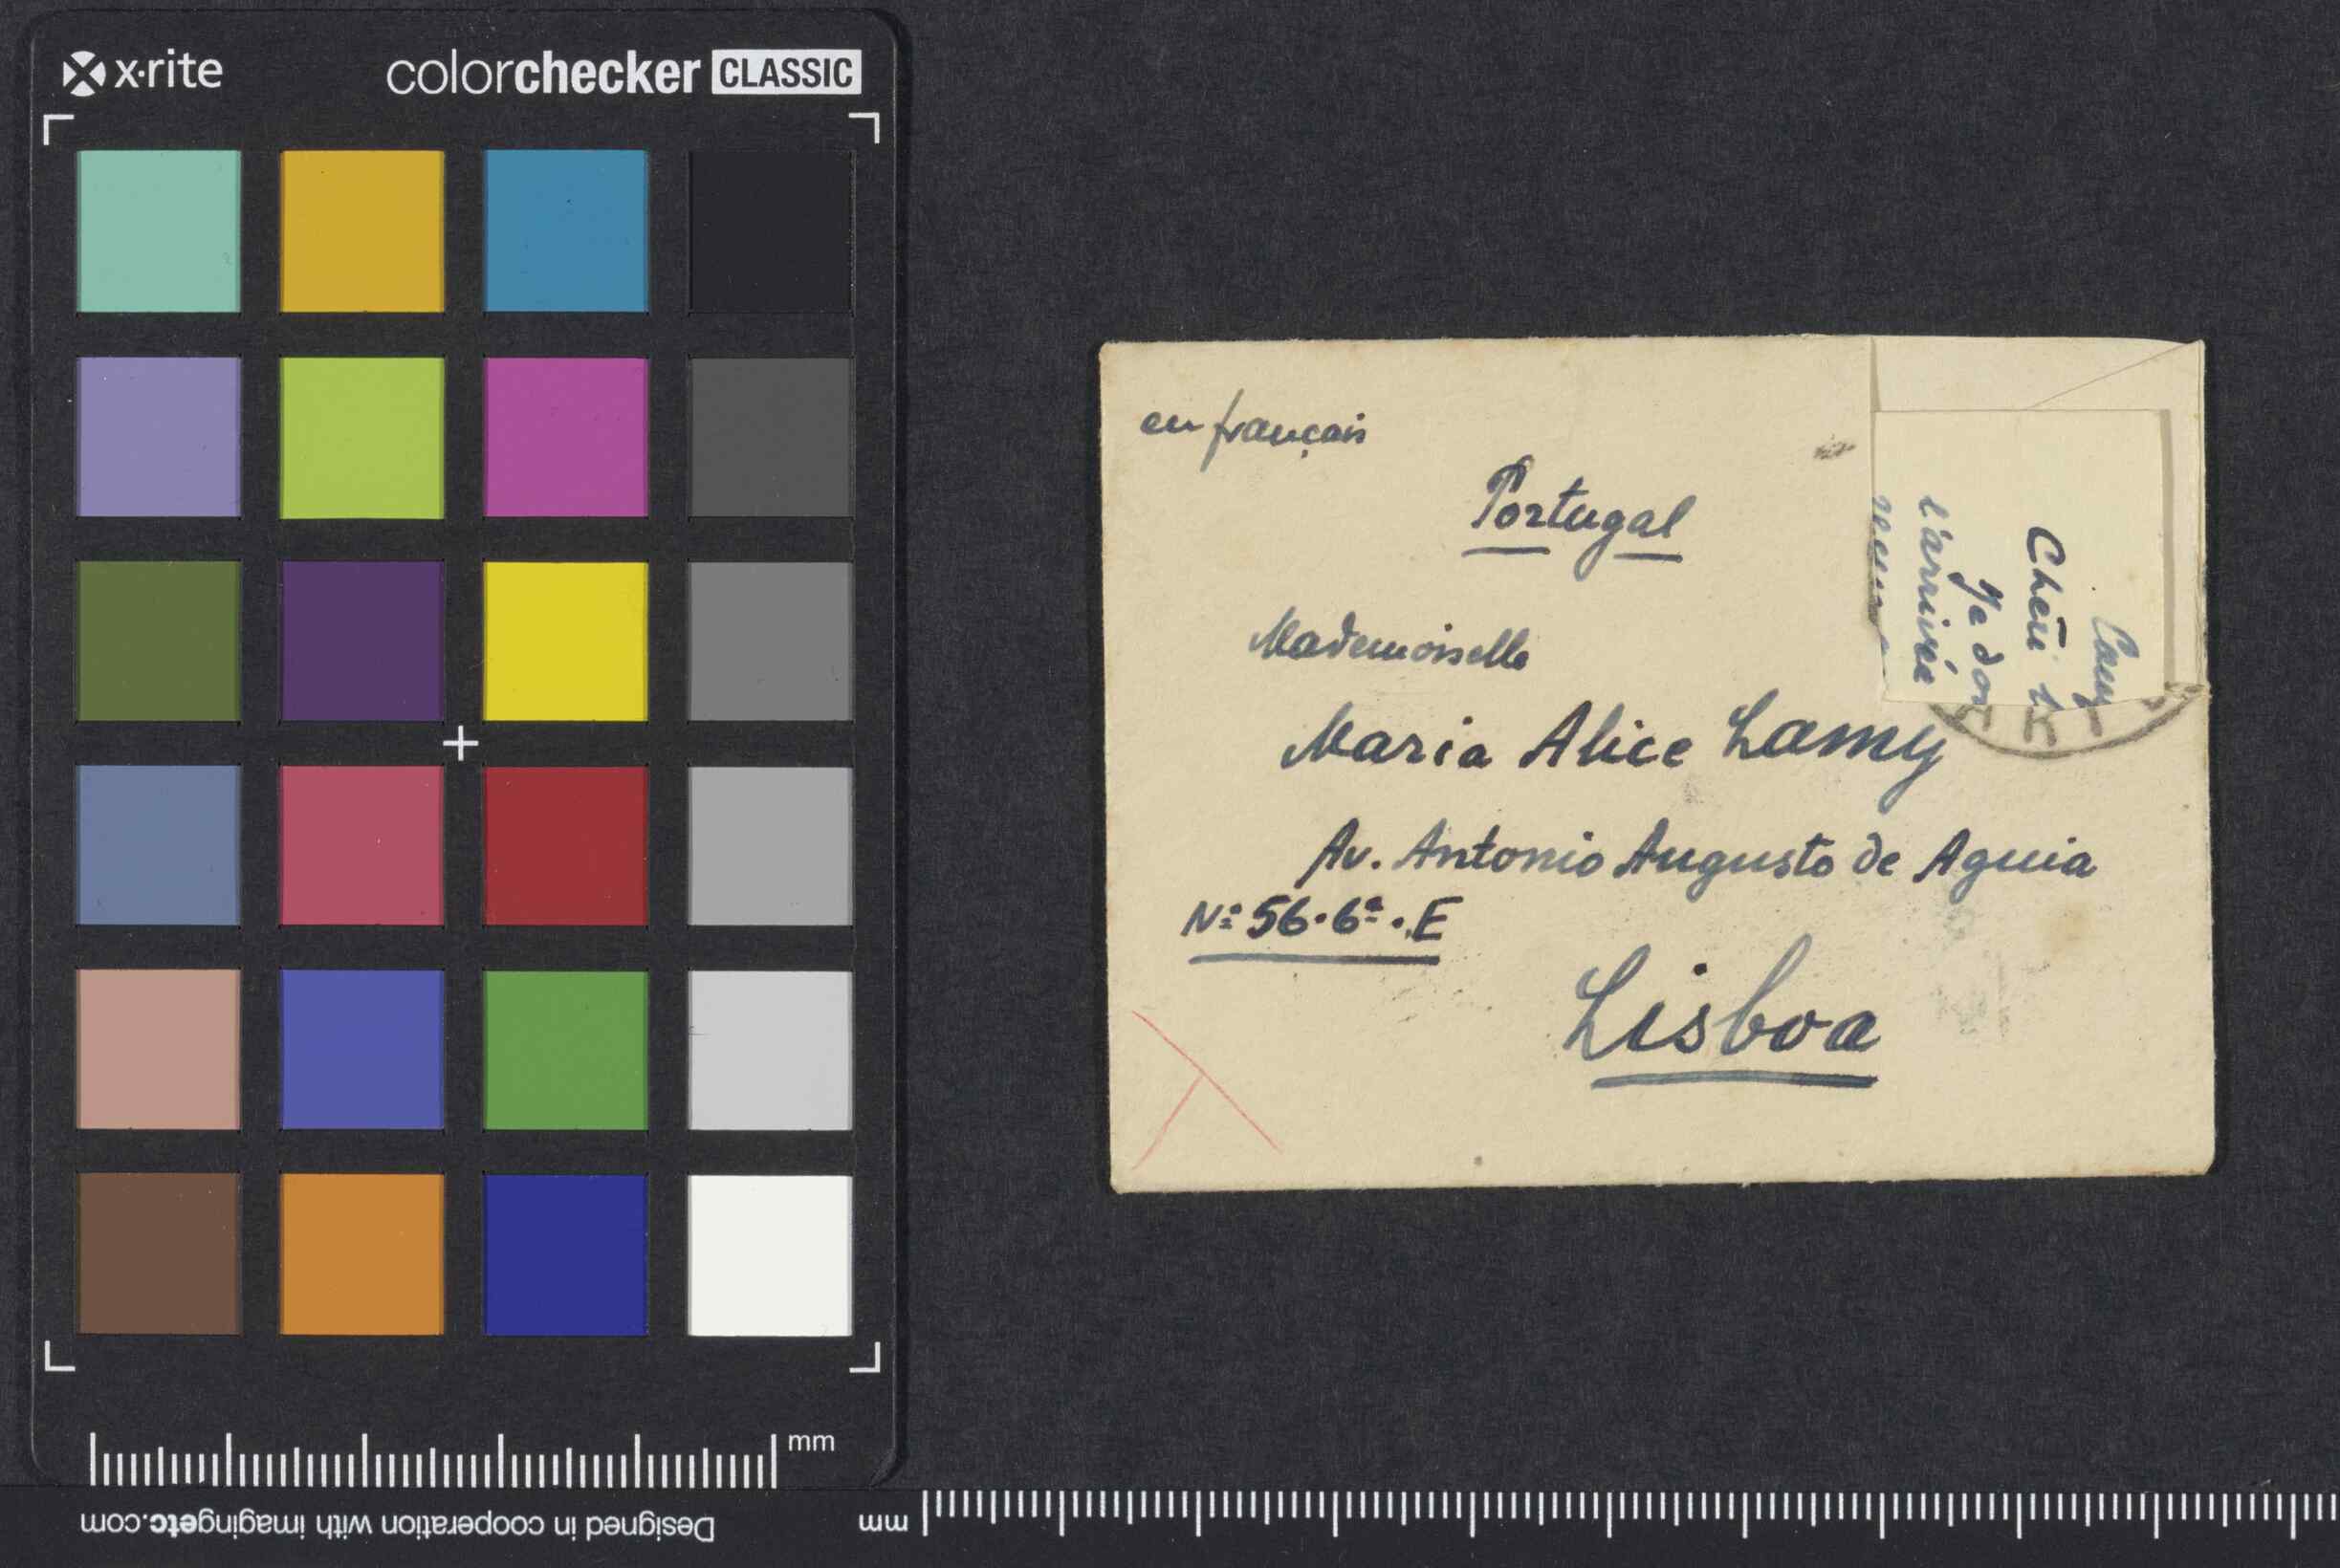 x·rite
colorchecker CLASSIC
en français
Portugal
Mademoiselle
Maria Alice Lamy
Av. Antonio Augusto de Aguia
Nº 56·6º·E
Lisboa
Je don
l'arrivée
mm
Designed in cooperation with imagingetc.com
mm